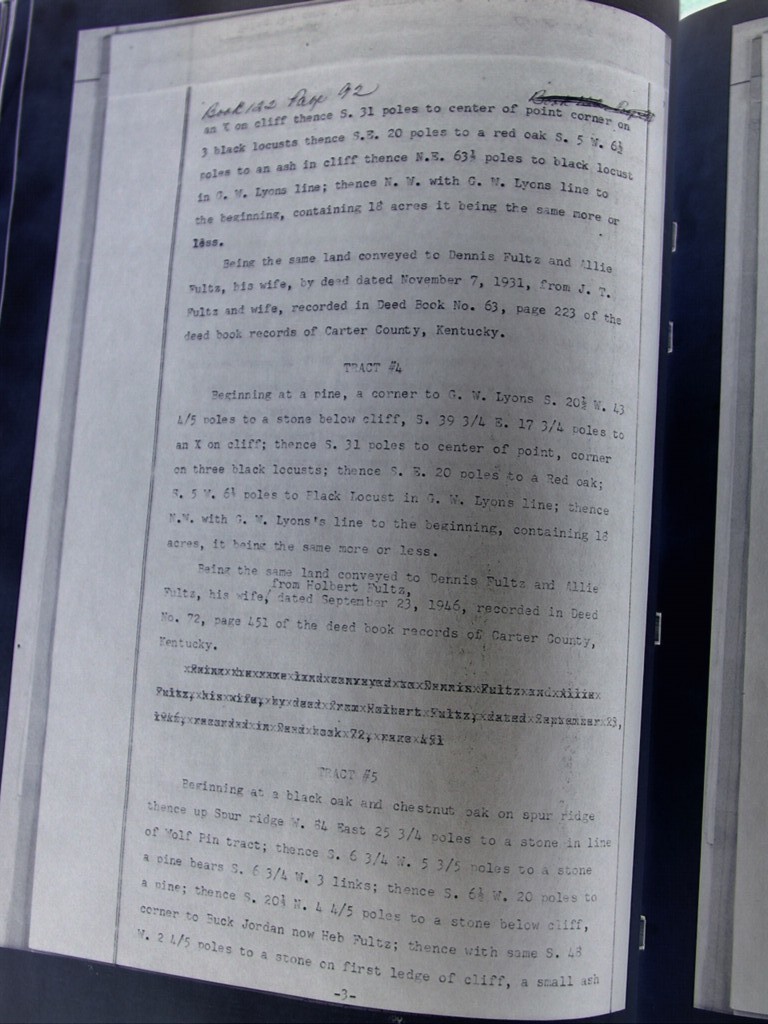 Book 122 Page 92
an X on cliff thence S. 31 poles to center of point corner on
3 black locusts thence S.E. 20 poles to a red oak S. 5 W. 6½
poles to an ash in cliff thence N.E. 63½ poles to black locust
in G. W. Lyons line; thence N. W. with G. W. Lyons line to
the beginning, containing 18 acres it being the same more or
less.
Being the same land conveyed to Dennis Fultz and Allie
Fultz, his wife, by deed dated November 7, 1931, from J. T.
Fultz and wife, recorded in Deed Book No. 63, page 223 of the
deed book records of Carter County, Kentucky.
TRACT #4
Beginning at a pine, a corner to G. W. Lyons S. 20½ W. 43
4/5 poles to a stone below cliff, S. 39 3/4 E. 17 3/4 poles to
an X on cliff; thence S. 31 poles to center of point, corner
on three black locusts; thence S. E. 20 poles to a Red oak;
S. 5 W. 6½ poles to Black Locust in G. W. Lyons line; thence
N.W. with G. W. Lyons's line to the beginning, containing 18
acres, it being the same more or less.
Being the same land conveyed to Dennis Fultz and Allie
from Holbert Fultz,
Fultz, his wife/ dated September 23, 1946, recorded in Deed
No. 72, page 451 of the deed book records of Carter County,
Kentucky.
Being the same land conveyed to Dennis Fultz and Allie
Fultz, his wife, by deed from Holbert Fultz, dated September 23,
1946, recorded in Deed book 72, page 451
TRACT #5
Beginning at a black oak and chestnut oak on spur ridge
thence up Spur ridge W. 84 East 25 3/4 poles to a stone in line
of Wolf Pin tract; thence S. 6 3/4 W. 5 3/5 poles to a stone
a pine bears S. 6 3/4 W. 3 links; thence S. 6½ W. 20 poles to
a pine; thence S. 20½ N. 4 4/5 poles to a stone below cliff,
corner to Buck Jordan now Heb Fultz; thence with same S. 48
W. 2 4/5 poles to a stone on first ledge of cliff, a small ash
-3-